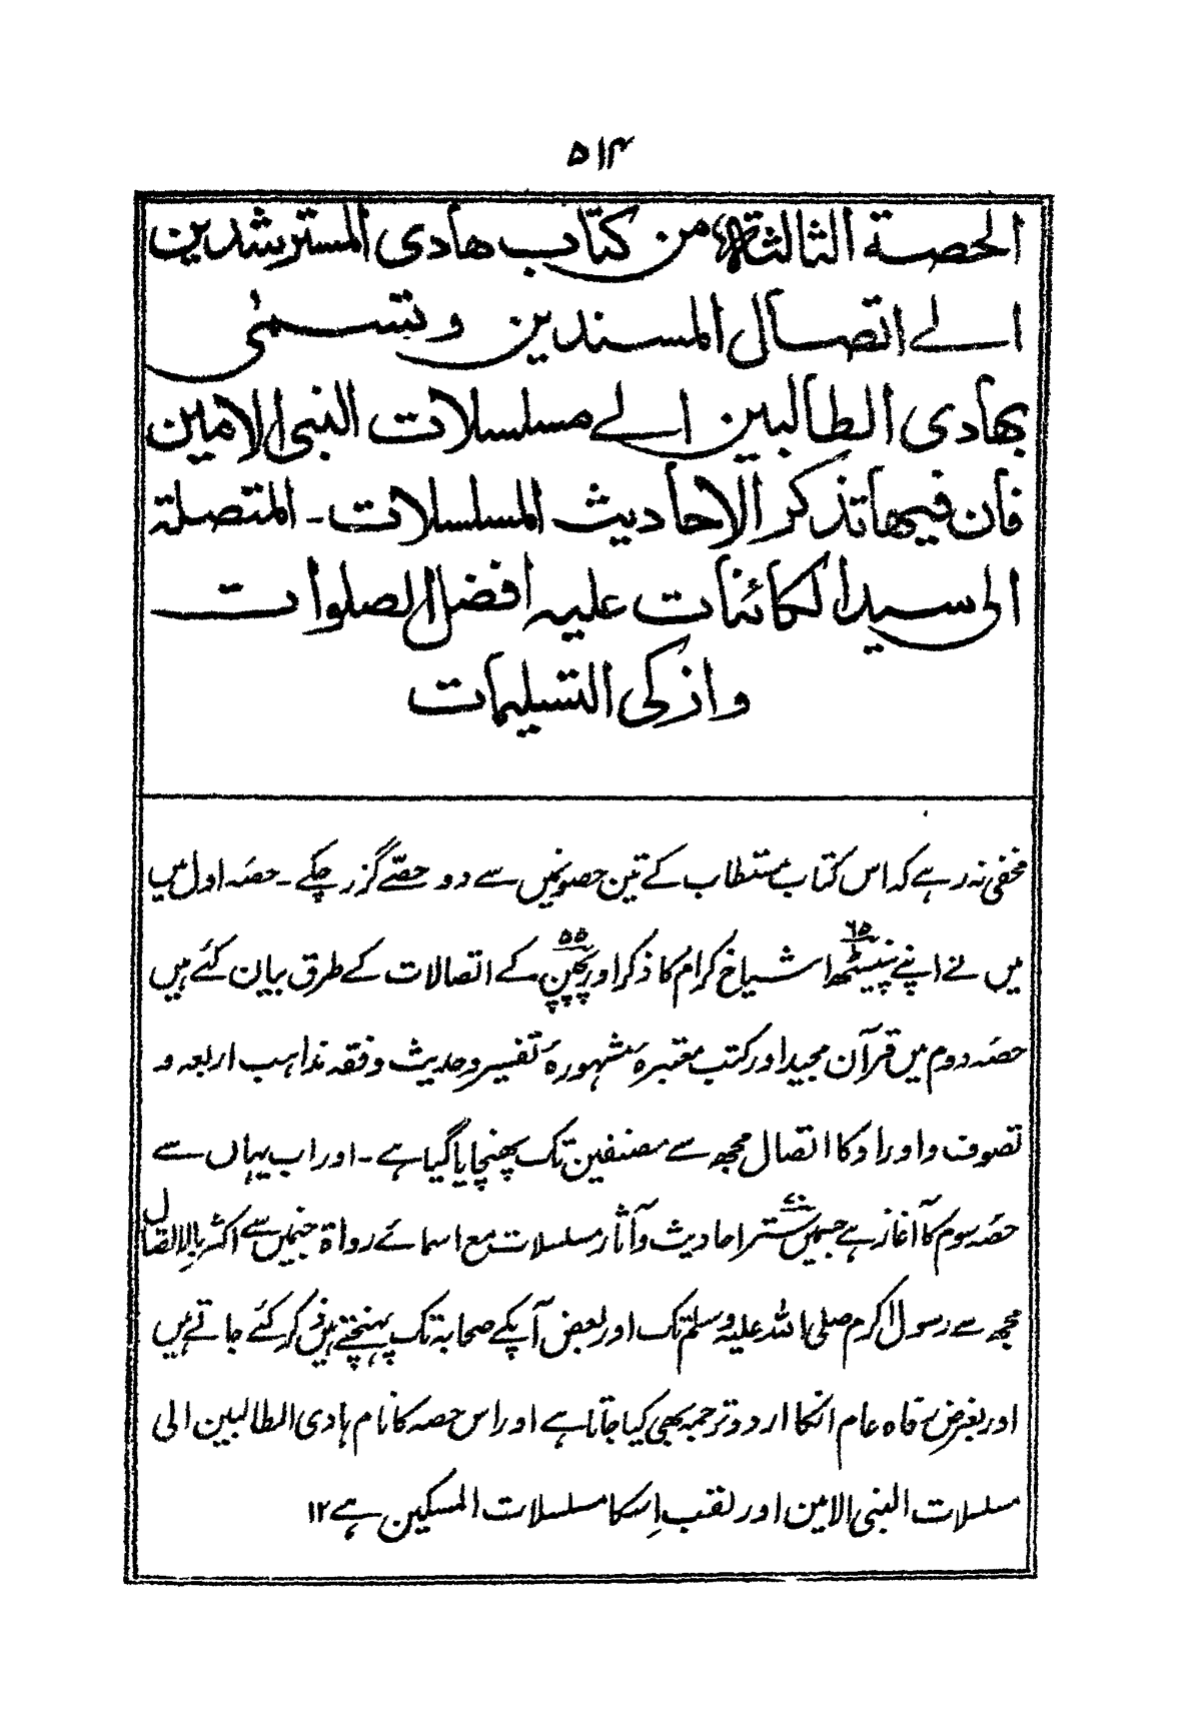 ۵۱۴
الحصة الثالثة من كتاب هادى المسترشدين
الے اتصال المسندين وتسمٰى
بهادى الطالبين الے مسلسلات النبى الامين
فان فيها تذكر الاحاديث المسلسلات - المتصلة
الى سيد الكائنات عليه افضل الصلوات
وازكى التسليمات
مخفی نہ رہے کہ اس کتاب مستطاب کے تین حصونمیں سے دو حصّے گزر چکے - حصہ اول میں
میں نے اپنے پینسٹھ ۶۵ اشیاخ کرام کا ذکر اور پچپن ۵۵ کے اتصالات کے طرق بیان کئے ہیں
حصہ دوم میں قرآن مجید اور کتب معتبرہ مشہورہ تفسیر وحدیث وفقہ مذاہب اربعہ و
تصوف واوراد کا اتصال مجھ سے مصنفین تک پهنچایا گیا ہے - اور اب یہاں سے
حصہ سوم کا آغاز ہے جسمیں ستر ۷۰ احادیث وآثار مسلسلات مع اسمائے رواۃ جنمیں سے اکثر بالاتصال
مجھ سے رسول اکرم صلی اللہ علیہ وسلم تک اور بعض آپکے صحابۃ تک پہنچتے ہیں ذکر کئے جاتے ہیں
اور بغرض رفاہ عام انکا اردو ترجمہ بھی کیا جاتا ہے اور اس حصہ کا نام ہادی الطالبین الی
مسلسلات النبی الامین اور لقب اِسکا مسلسلات المسکین ہے ۱۲